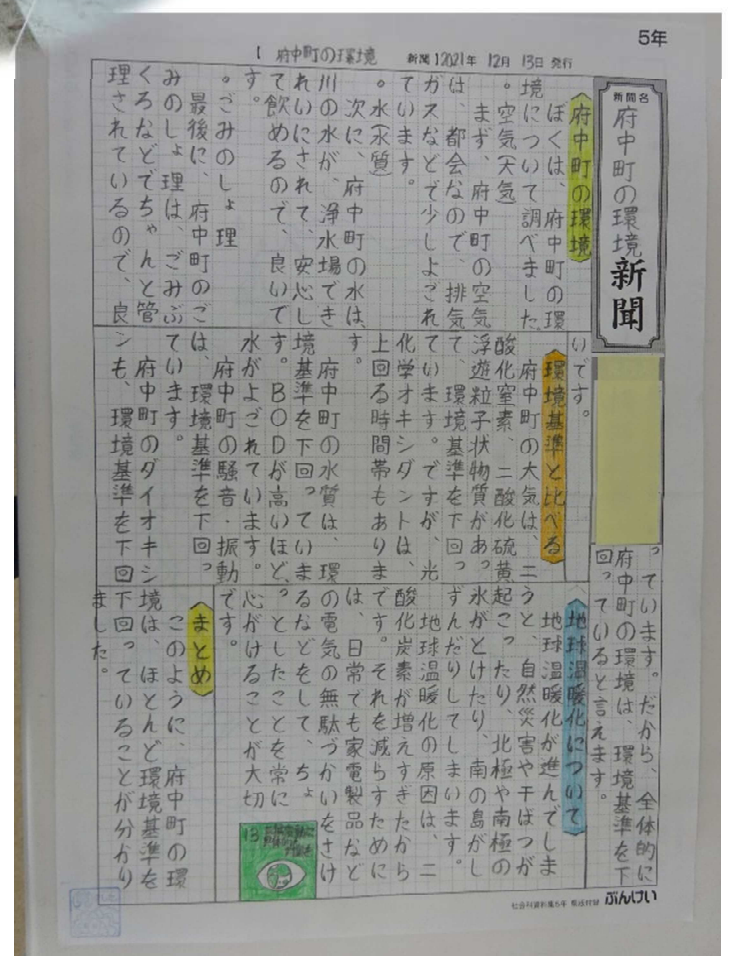 5年
1 府中町の環境 新聞 12021年 12月 13日 発行
新聞名
府中町の環境新聞
府中町の環境
ぼくは、府中町の環
境について調べました
。空気(大気)
まず、府中町の空気
は、都会なので、排気
ガスなどで少しよごれ
ています。
。水(水質)
次に、府中町の水は、
川の水が、浄水場でき
れいにされて、安心し
て飲めるので、良いで
す。
。ごみのしょ理
最後に、府中町のご
みのしょ理は、ごみぶ
くろなどでちゃんと管
理されているので、良
いです。
環境基準と比べる
府中町の大気は、二
酸化窒素、二酸化硫黄
浮遊粒子状物質があっ
て、環境基準を下回っ
ています。ですが、光
化学オキシダントは、
上回る時間帯もありま
す。
府中町の水質は、環
境基準を下回っていま
す。BODが高いほど、
水がよごれています。
府中町の騒音・振動
は、環境基準を下回っ
ています。
府中町のダイオキシ
ンも、環境基準を下回
っています。だから、全体的に
府中町の環境は、環境基準を下
回っていると言えます。
地球温暖化について
地球温暖化が進んでしま
うと、自然災害や干ばつが
起こったり、北極や南極の
氷がとけたり、南の島がし
ずんだりしてしまいます。
地球温暖化の原因は、二
酸化炭素が増えすぎたから
です。それを減らすために
は、日常でも家電製品など
の電気の無駄づかいをさけ
るなどをして、ちょ
っとしたことを常に
心がけることが大切
です。
13
まとめ
このように、府中町の環
境は、ほとんど環境基準を
下回っていることが分かり
ました。
社会科資料集5年 県版付録 ぶんけい